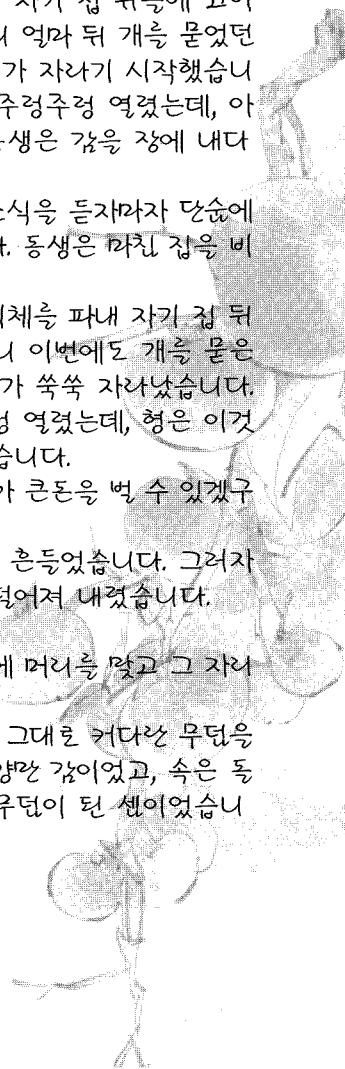 자기 집 뒤뜰에 고이
얼마 뒤 개를 묻었던
가 자라기 시작했습니
주렁주렁 열렸는데, 아
생은 감을 장에 내다
소식을 듣자마자 단숨에
. 동생은 마침 집을 비
체를 파내 자기 집 뒤
니 이번에도 개를 묻은
가 쑥쑥 자라났습니다.
열렸는데, 형은 이것
습니다.
아 큰돈을 벌 수 있겠구
흔들었습니다. 그러자
떨어져 내렸습니다.
에 머리를 맞고 그 자리
그대로 커다란 무덤을
양만 감이었고, 속은 돌
무덤이 된 셈이었습니